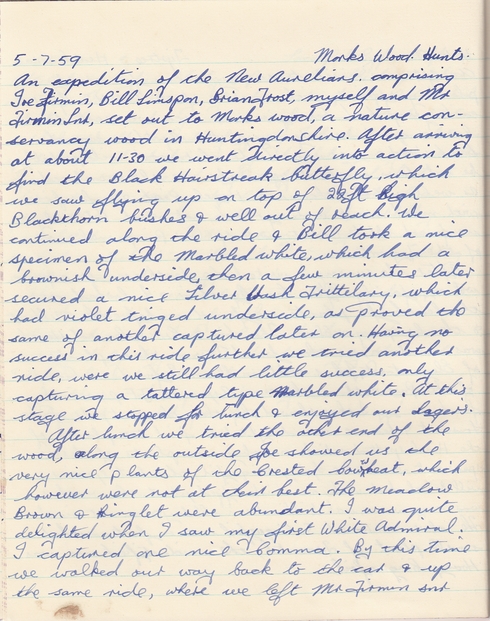 5-7-59 Monks Wood. Hunts.
An expedition of the New Aurelians. comprising
Joe Firmin, Bill Simpson, Brian Frost, myself and Mr
Firmin Snr, set out to Monks wood, a nature con-
servancy wood in Huntingdonshire. After arriving
at about 11-30 we went directly into action to
find the Black Hairstreak butterfly, which
we saw flying up on top of high
Blackthorn bushes & well out of reach. We
continued along the ride & Bill took a nice
specimen of the Marbled white, which had a
brownish underside, then a few minutes later
secured a nice Silver Wash Frittilary, which
had violet tinged underside, as proved the
same of another captured later on. Having no
success in this ride further we tried another
ride, were we still had little success, only
capturing a tattered type marbled white. At this
stage we stopped for lunch & enjoyed our lagers.
After lunch we tried the other end of the
wood, along the outside Joe showed us the
very nice plants of the Crested Cowheat, which
however were not at their best. The Meadow
Brown & Ringlet were abundant. I was quite
delighted when I saw my first White Admiral.
I captured one nice Comma. By this time
we walked our way back to the car & up
the same ride, where we left Mr Firmin snr